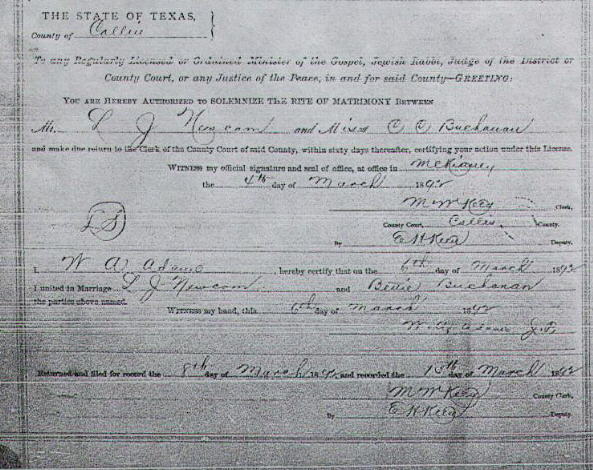 THE STATE OF TEXAS,
County of Collin
To any Regularly Licensed or Ordained Minister of the Gospel, Jewish Rabbi, Judge of the District or
County Court, or any Justice of the Peace, in and for said County—GREETING:
YOU ARE HEREBY AUTHORIZED TO SOLEMNIZE THE RITE OF MATRIMONY BETWEEN
Mr. L J Newcom and Miss C C Buchanan
and make due return to the Clerk of the County Court of said County, within sixty days thereafter, certifying your action under this License.
WITNESS my official signature and seal of office, at office in McKinney
the 4th day of March 1892
M W Clerk,
County Court, Collin County.
By E H Deputy.
LS
I, W A Adams hereby certify that on the 6th day of March 1892
I united in Marriage L J Newcom and Buchanan
the parties above named.
WITNESS my hand, this 6th day of March 1892
W. A. Adams J.P.
Returned and filed for record the 8th day of March 1892 and recorded the 15th day of March 1892
M W County Clerk,
By E H Deputy.